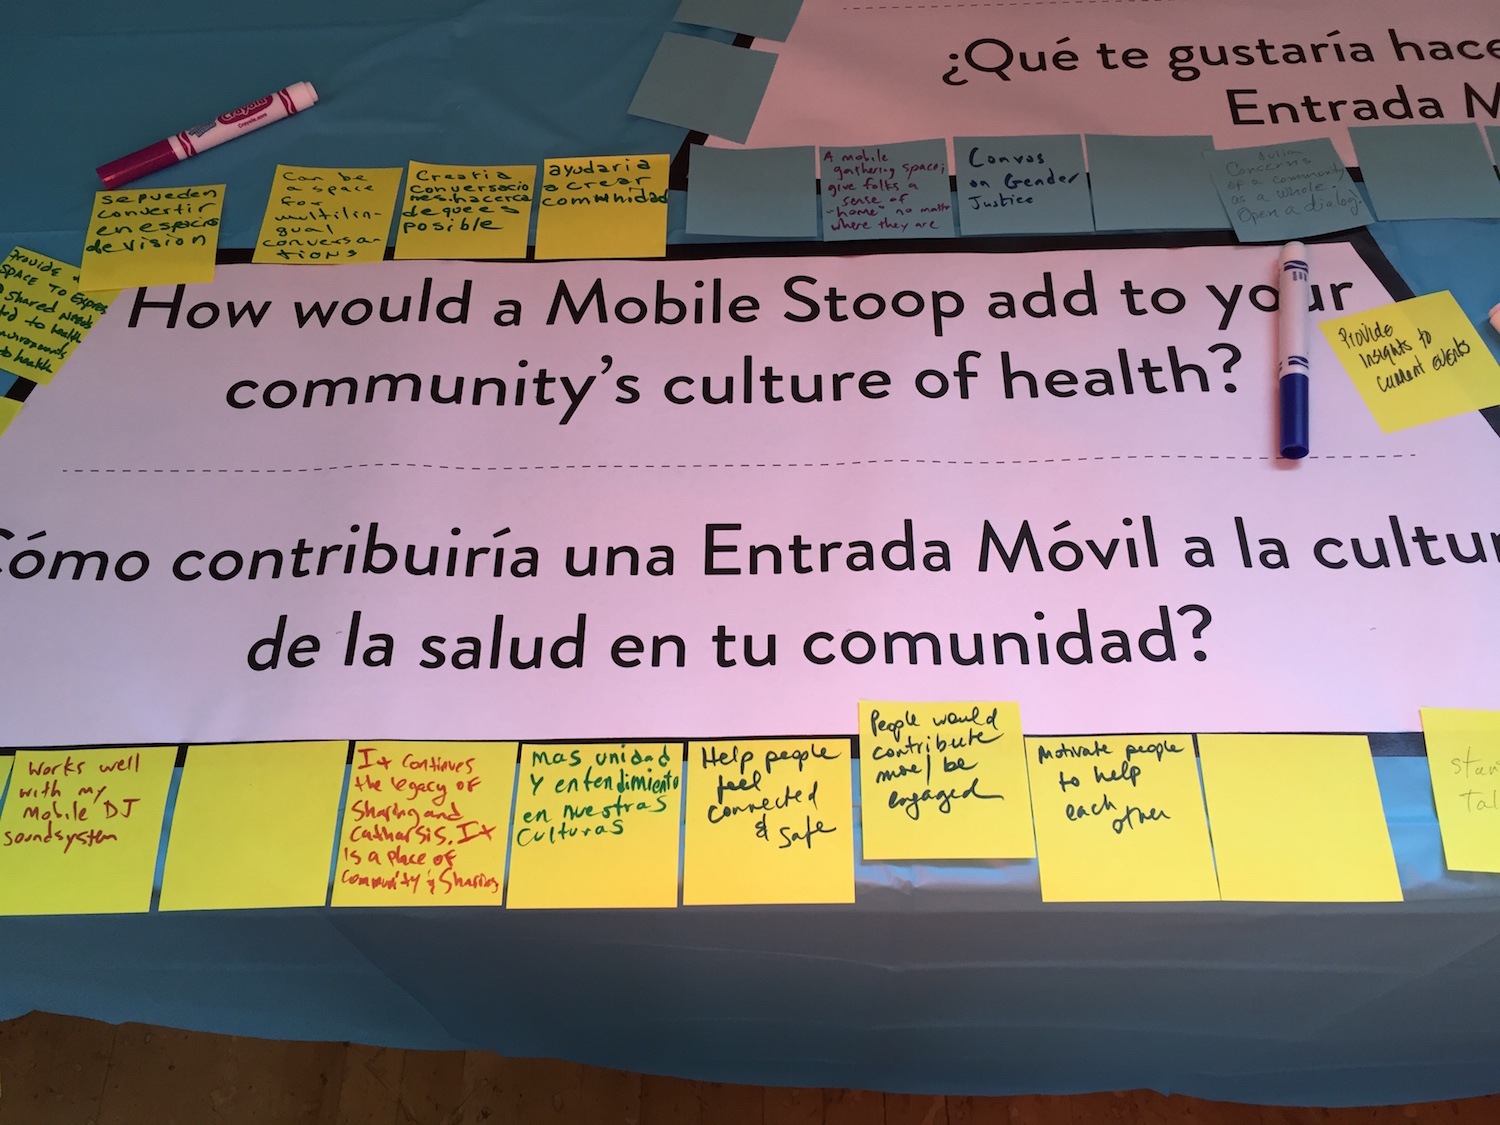 ¿Qué te gustaría hace
Entrada M
Crayola
sepueden
convertir
en espacios
de vision
Can be
a space
for
multilin-
gual
conversa-
tions
Crearia
conversacio
nes. hacerca
de que es
posible
ayudaria
a crear
comunidad
A mobile
gathering space;
give folks a
sense of
"home" no matter
where they are
Convos
on Gender
Justice
Concerns
of a community
as a whole.
Open a dialog.
Provide
SPACE TO Express
Shared Needs
to health
to health
How would a Mobile Stoop add to your
community's culture of health?
Provide
Insights to
current events
Cómo contribuiría una Entrada Móvil a la cultur
de la salud en tu comunidad?
Works well
with my
Mobile DJ
soundsystem
It continues
the legacy of
Sharing and
Catharsis. It
is a place of
Community & Sharing
Mas unidad
Y entendimiento
en nuestras
culturas
Help people
feel
connected
& safe
People would
contribute
more/be
engaged
Motivate people
to help
each
other